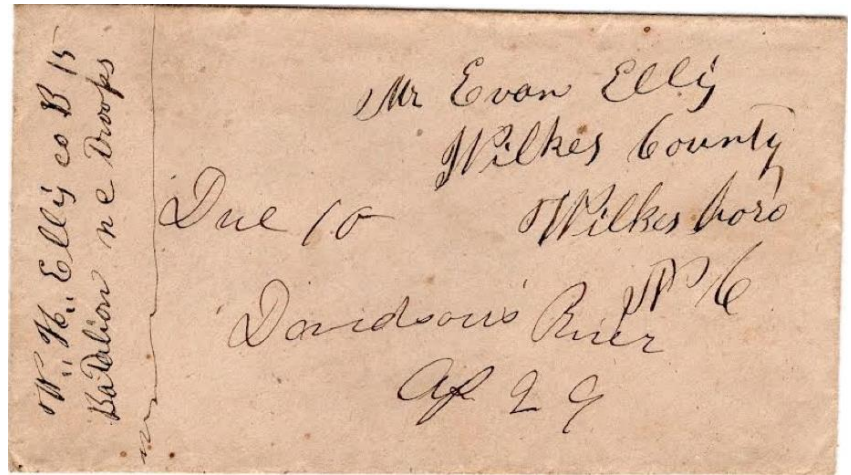 W. H. Elly co B 15
Batalion n c Troops
Mr Evan Elly
Wilkes County
Wilkesboro
N C
Due 10
Davidson's River
Ap 29